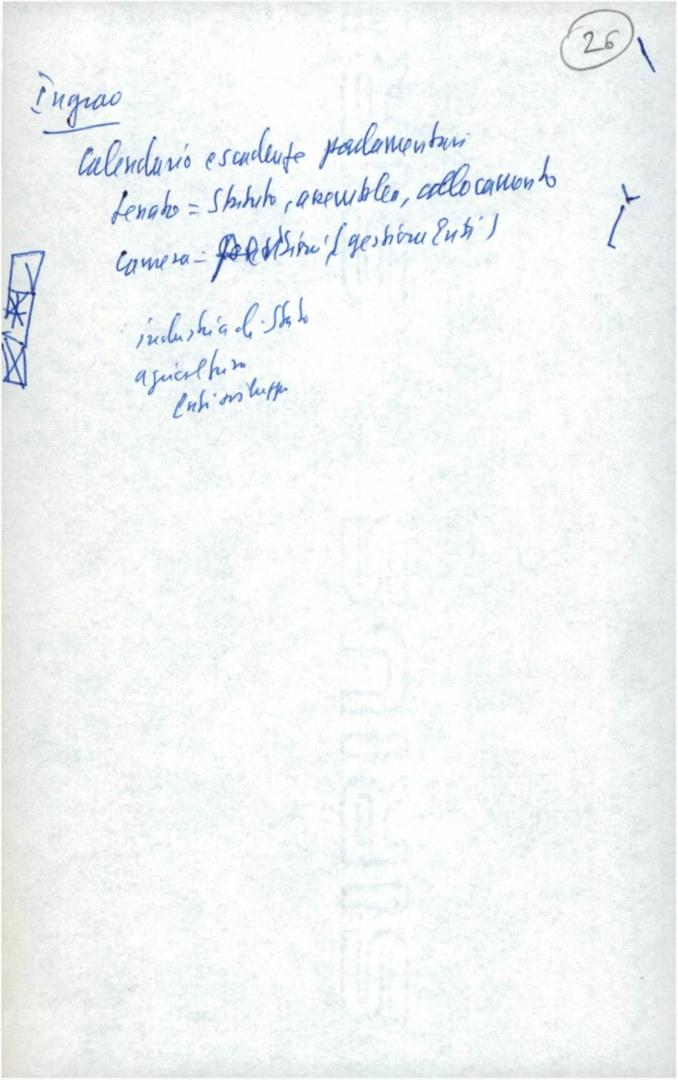 26
Ingrao
Calendario scadenze parlamentari
Senato = Statuto, assemblea, collocamento
Camera = pensioni (gestione Enti)
industria di Stato
agricoltura
Enti sviluppo